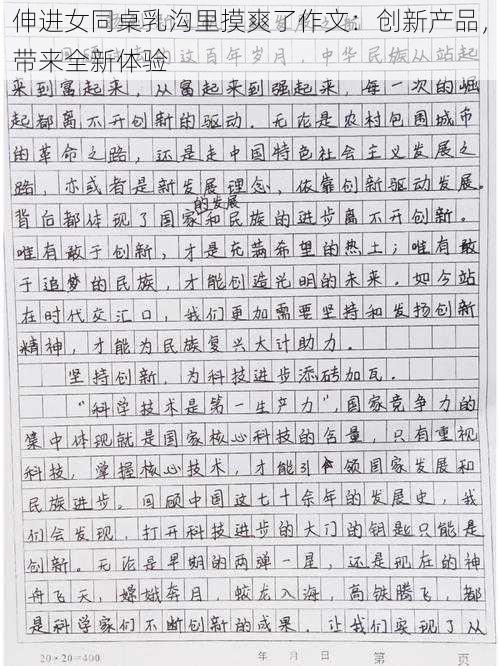 创新产品，
带来全新体验
这百年岁月，中华民族从站起
来到富起来，从富起来到强起来，每一次的崛
起都离不开创新的驱动。无论是农村包围城市
的革命之路，还是走中国特色社会主义发展之
路，亦或者是新发展理念，依靠创新驱动发展。
的发展
背后都体现了国家和民族的进步离不开创新。
唯有敢于创新，才是充满希望的热土；唯有敢
于追梦的民族，才能创造光明的未来。如今站
在时代交汇口，我们更加需要坚持和发扬创新
精神，才能为民族复兴大计助力。
坚持创新，为科技进步添砖加瓦。
“科学技术是第一生产力”，国家竞争力的
集中体现就是国家核心科技的含量，只有重视
科技，掌握核心技术，才能引领国家发展和
民族进步。回顾中国这七十余年的发展史，我
们会发现，打开科技进步的大门的钥匙只能是
创新。无论是早期的两弹一星，还是现在的神
舟飞天，嫦娥奔月，蛟龙入海，高铁腾飞，都
是科学家们不断创新的成果，让我们实现了从
20×20=400 年 月 日 第 页